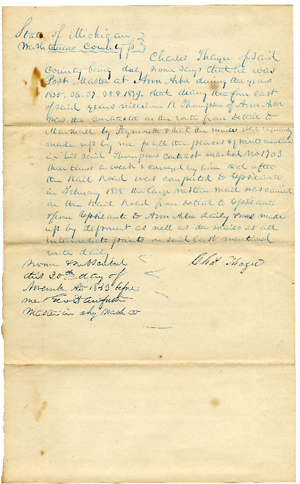 State of Michigan }
Washtenaw County } ss
Charles Thayer of said
County being duly sworn says that he was
Post Master at Ann Arbor during the years
1835. 36. 37. 38. & 1839, that during the four last
of said years William R Thompson of Ann Arbor
was the contractor on the route from Detroit to
Marshall by Plymouth & that the mails was regularly
made up by me for all the places & points mentioned
in his said Thompsons contract marked No 1703
three times a week & carried by him and after
the Rail Road was completed to Ypsilanti
in February 1838 the large western mail was carried
on the Rail Road from Detroit to Ypsilanti
& from Ypsilanti to Ann Arbor daily & was made
up by deponent as well as the mails at all
intermediate points on said last mentioned
route daily
Sworn & subscribed
this 20th day of
November AD 1843 before
me
Master in chy Wash Co
Chas Thayer